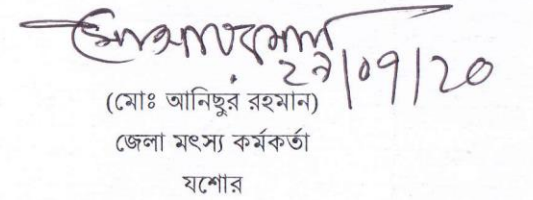 ২৭/০৭/২০
(মোঃ আনিছুর রহমান)
জেলা মৎস্য কর্মকর্তা
যশোর